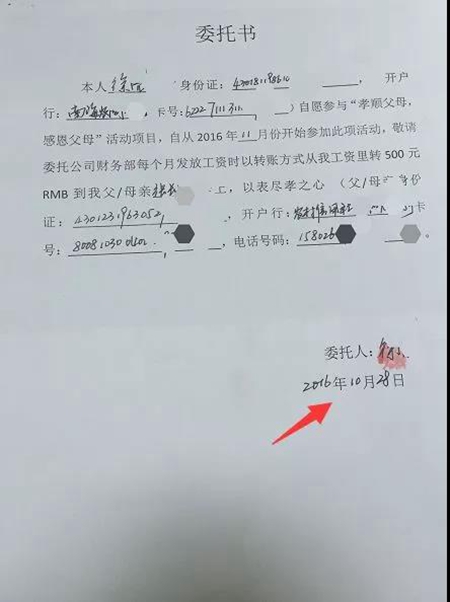 委托书
本人徐 身份证：43018119861 ，开户
行： ，卡号：6227111311 ，）自愿参与“孝顺父母，
感恩父母”活动项目，自从2016年11月份开始参加此项活动，敬请
委托公司财务部每个月发放工资时以转账方式从我工资里转500元
RMB到我父/母亲 上，以表尽孝之心（父/母 身份
证：4301231963052 ，开户行：农村信用社 卡
号：80081030 ，电话号码：158026 。
委托人：徐
2016年10月28日